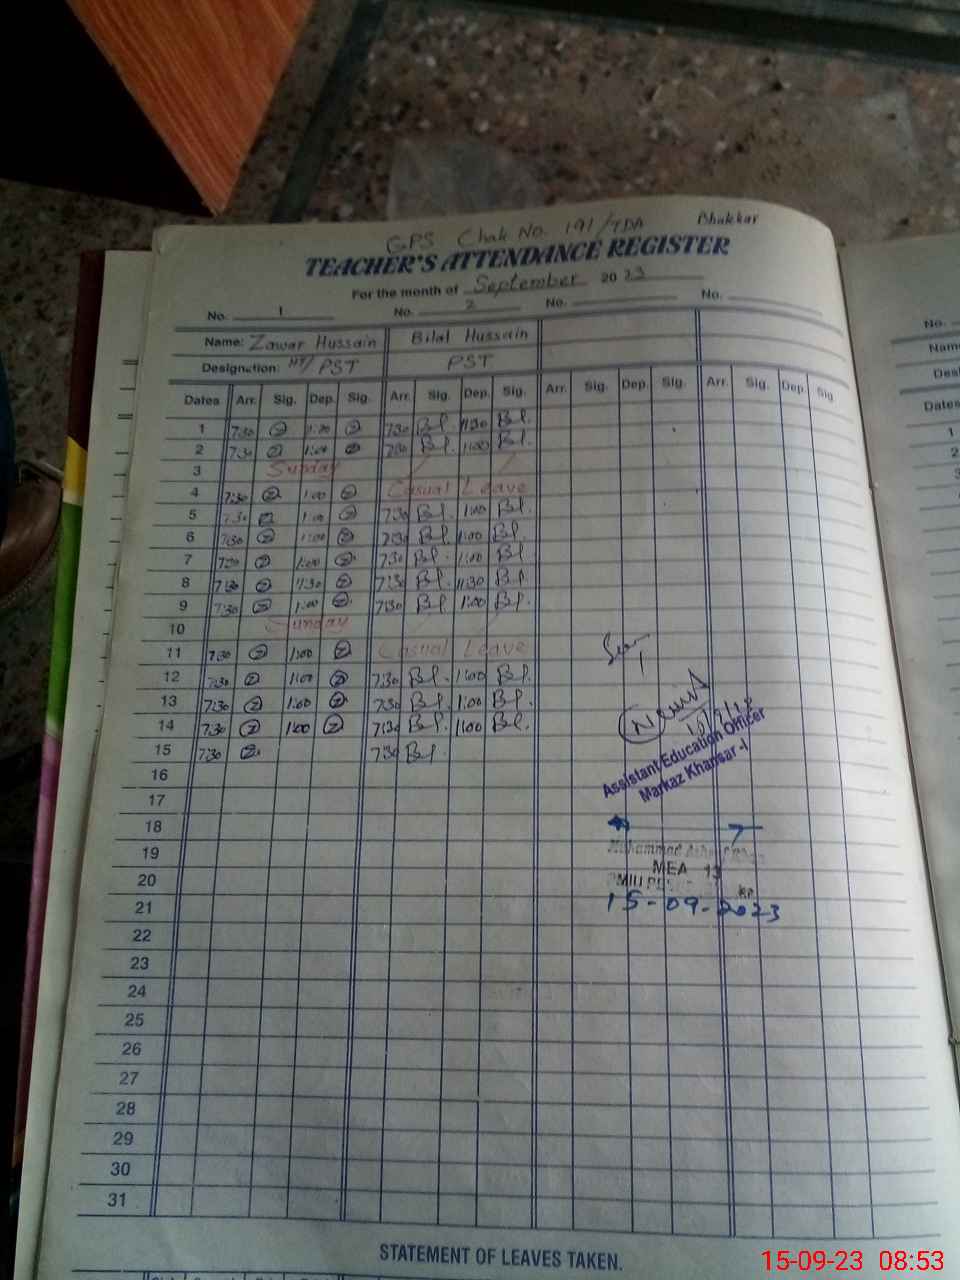 GPS Chak No. 191/TDA Bhakkar
TEACHER'S ATTENDANCE REGISTER
For the month of September 2023
No. 1 No. 2 No. No.
Name: Zawar Hussain Bilal Hussain
Designation: HT/PST PST
Dates Arr. Sig. Dep. Sig. Arr. Sig. Dep. Sig. Arr. Sig. Dep. Sig. Arr. Sig. Dep. Sig.
1 7:30 7:30 11:30
2 7:30 1:00 7:30 1:00
3 Sunday
4 7:30 1:00 Casual Leave
5 7:30 1:00 7:30 1:00
6 7:30 1:00 7:30 1:00
7 7:30 1:00 7:30 1:00
8 7:30 11:30 7:30 11:30
9 7:30 1:00 7:30 1:00
10 Sunday
11 7:30 1:00 Casual Leave
12 7:30 1:00 7:30 1:00
13 7:30 1:00 7:30 1:00
14 7:30 1:00 7:30 1:00
15 7:30 7:30
Assistant Education Officer
Markaz Khansar-I
16
17
18
19
MEA 13
20
15-09-2023
21
22
23
24
25
26
27
28
29
30
31
STATEMENT OF LEAVES TAKEN.
15-09-23 08:53
No.
Name
Dates
1
2
3
4
5
6
7
8
9
10
11
12
13
14
15